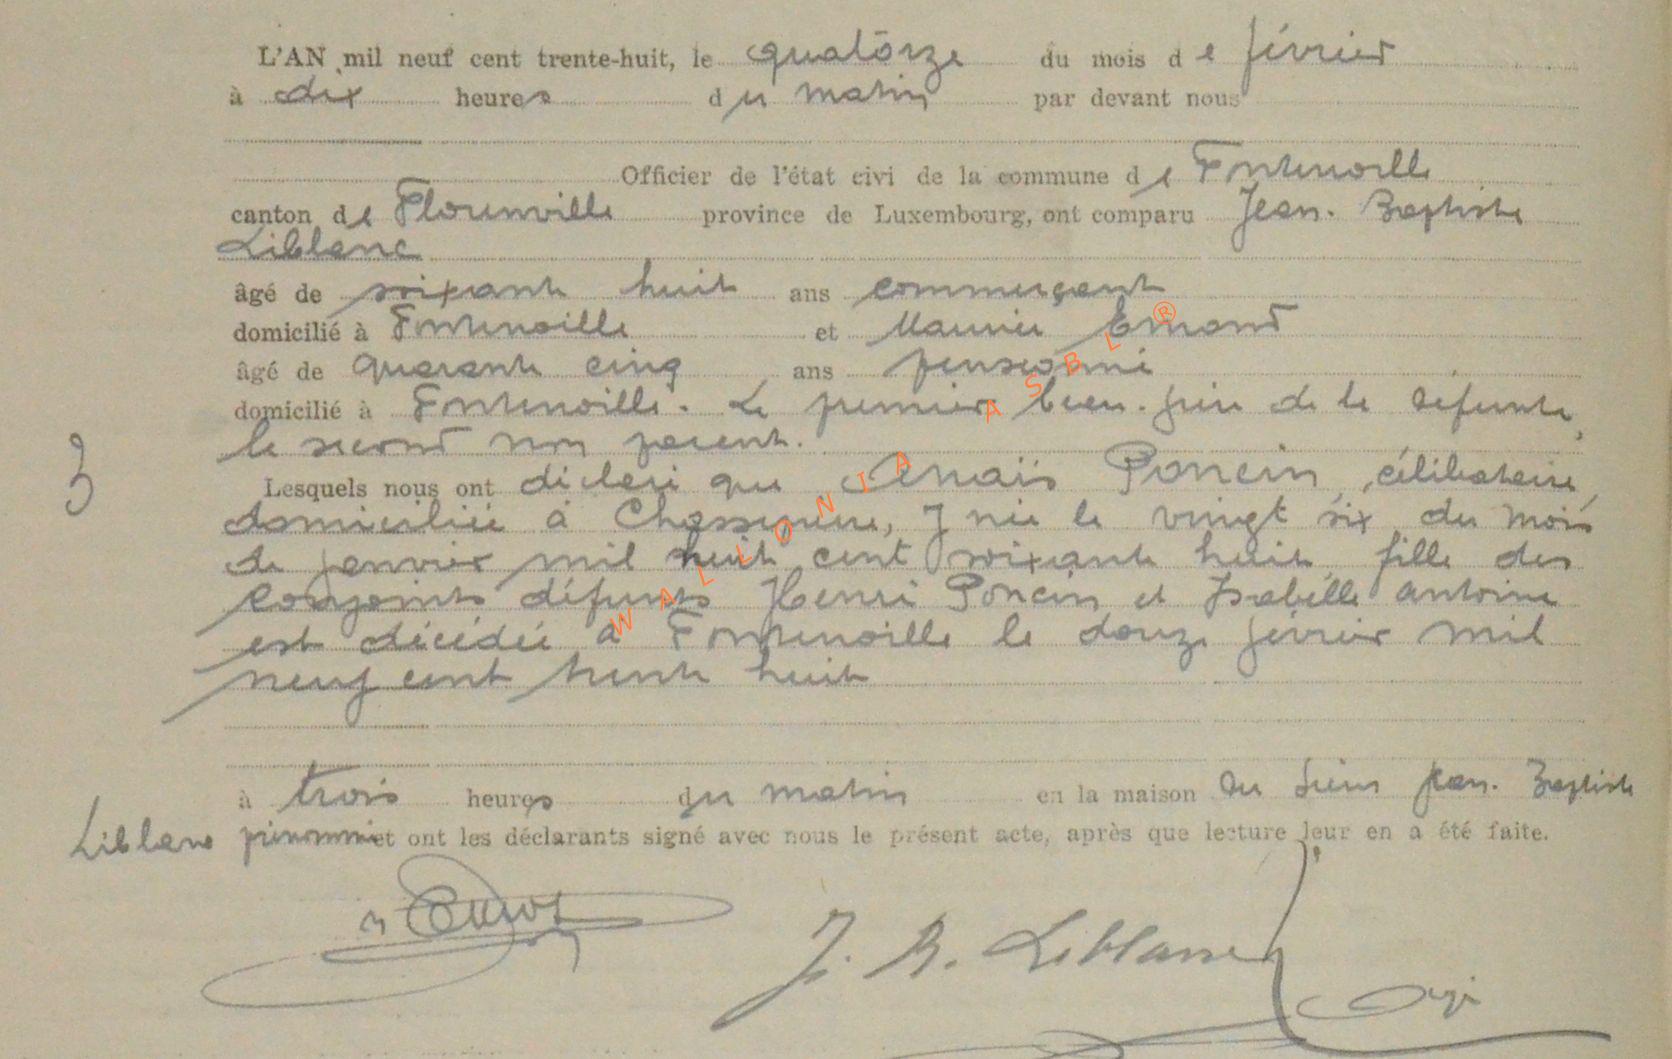 L'AN mil neuf cent trente-huit, le quatorze du mois de février
à dix heures du matin par devant nous
Officier de l'état civi de la commune de Fontenoille
canton de Florenville province de Luxembourg, ont comparu Jean-Baptiste
Leblanc
âgé de soixante huit ans commerçant
domicilié à Fontenoille et Maurice Emond
âgé de quarante cinq ans pensionné
domicilié à Fontenoille. Le premier beau-frère de la défunte,
le second non parent.
3
Lesquels nous ont déclaré que Anaïs Poncin, célibataire,
domiciliée à Chassepierre, y née le vingt six du mois
de janvier mil huit cent soixante huit fille des
conjoints défunts Henri Poncin et Isabelle Antoine
est décédée à Fontenoille le douze février mil
neuf cent trente huit
à trois heures du matin en la maison du sieur Jean-Baptiste
Leblanc prénommé et ont les déclarants signé avec nous le présent acte, après que lecture leur en a été faite.
J. B. Leblanc
WALLONIA ASBL ®